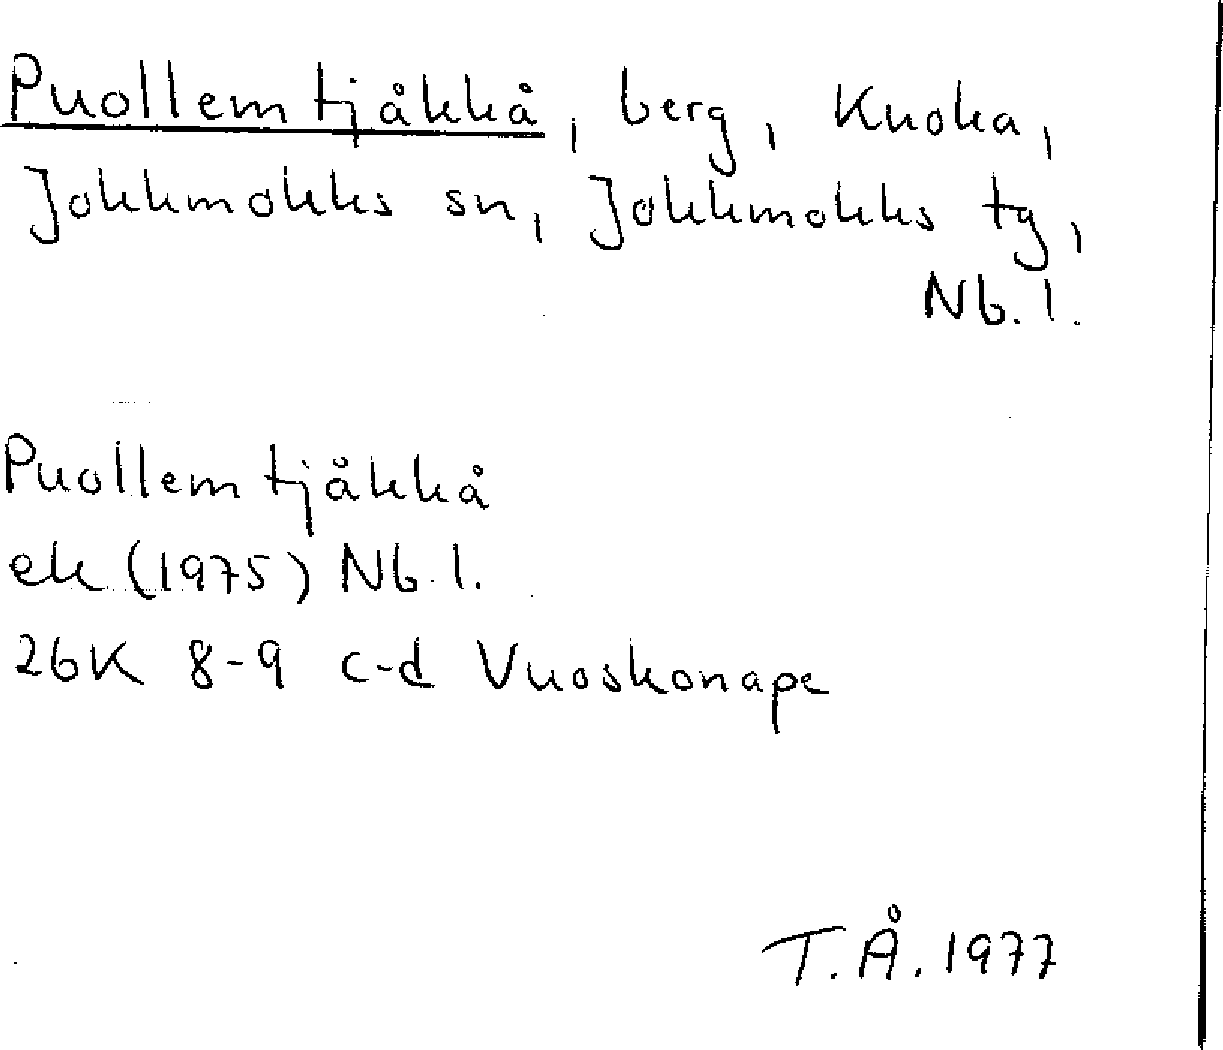 Puollemtjåkkå, berg, Kuoka,
Jokkmokks sn, Jokkmokks tg,
Nb.l.
Puollemtjåkkå
ek (1975) Nb.l.
26K 8-9 c-d Vuoskonape
T.Å. 1977